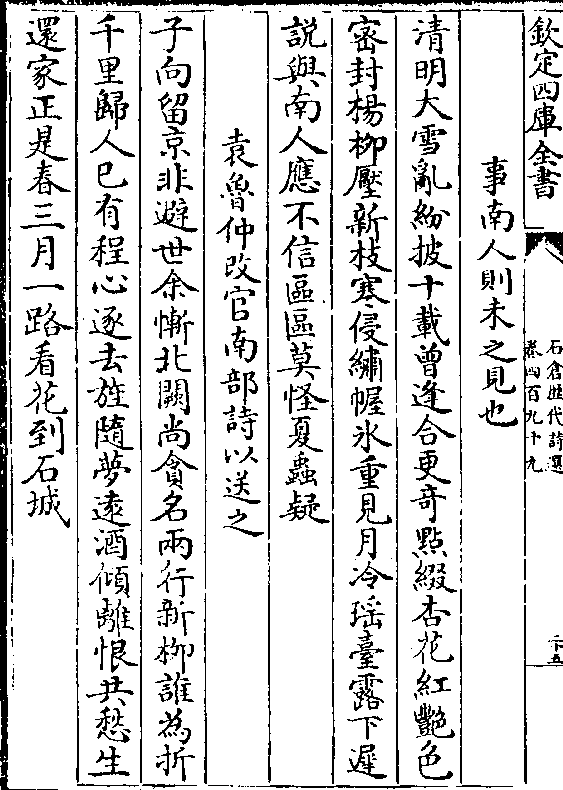 欽定四庫全書
石倉歷代詩選
卷四百九十九
二十五
事南人則未之見也
清明大雪亂紛披十載曾逢合更奇點綴杏花紅艷色
密封楊柳壓新枝寒侵繡幄氷重見月冷瑶臺露下遲
説與南人應不信區區莫怪夏蟲疑
袁魯仲改官南部詩以送之
子向留京非避世余慚北闕尚貪名兩行新柳誰為折
千里歸人已有程心逐去旌隨夢遠酒傾離恨共愁生
還家正是春三月一路看花到石城